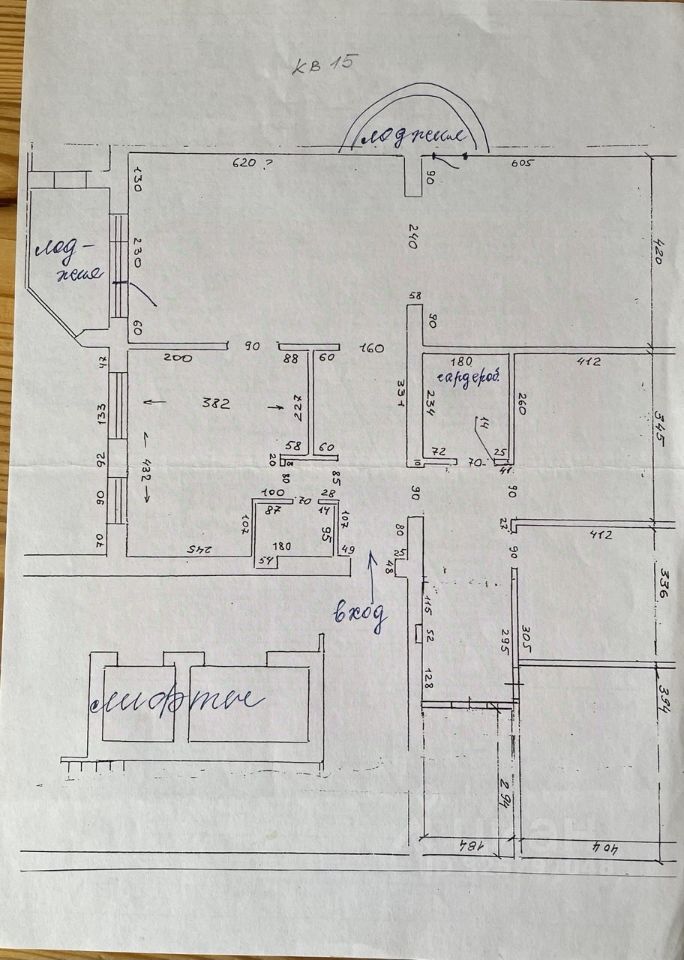 кв 15
лоджия
620 ?
605
130
90
лод-
жия
230
240
420
60
58
90
200
90
88
60
160
180
412
47
гардероб.
382
227
331
234
260
133
14
345
432
92
58
60
72
70
25
41
20
8
10
80
85
90
90
90
100
70
28
87
14
107
107
95
80
27
412
70
245
180
49
90
54
48
336
вход
115
52
295
305
128
лифты
394
294
184
404